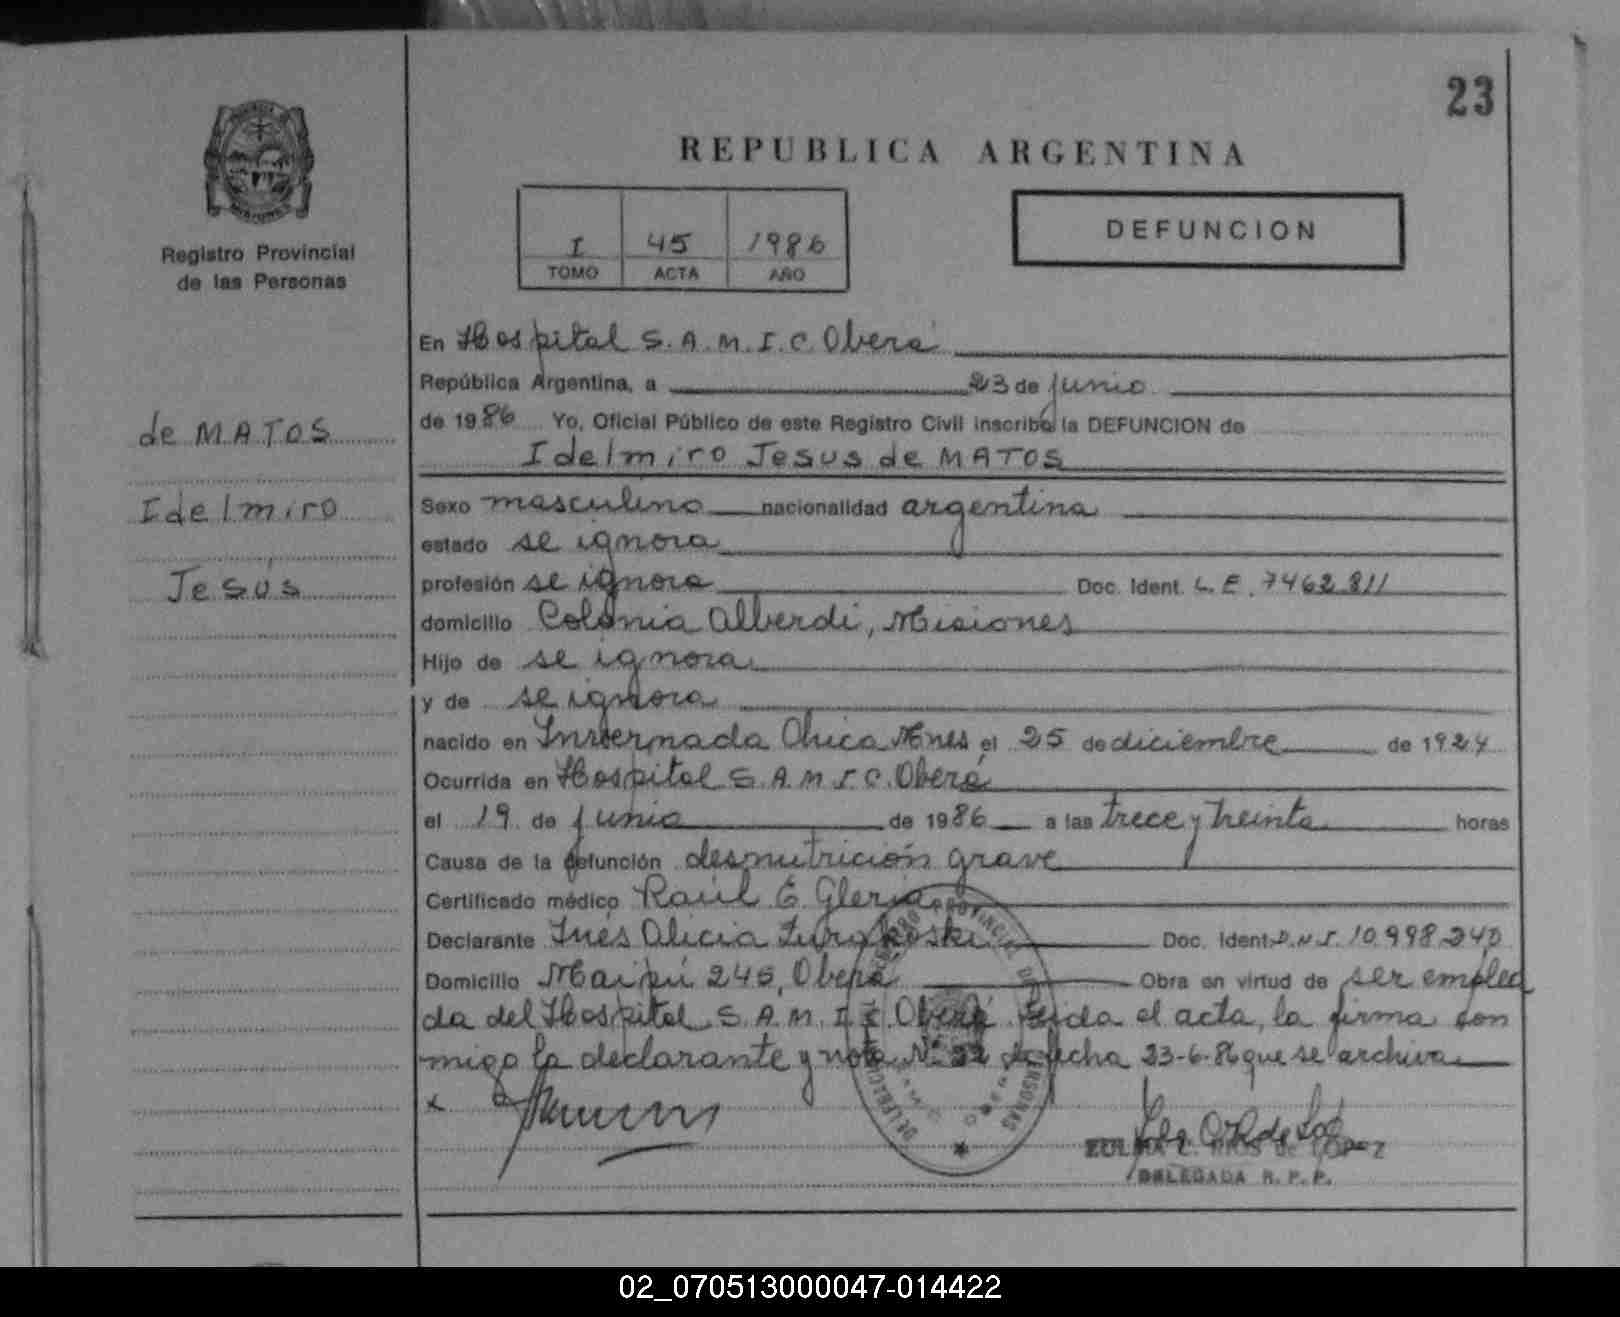 23
REPUBLICA ARGENTINA
I 45 1986
TOMO ACTA AÑO
DEFUNCION
Registro Provincial
de las Personas
de MATOS
Idelmiro
Jesús
En Hospital S.A.M.I.C. Oberá
República Argentina, a 23 de junio
de 1986 Yo, Oficial Público de este Registro Civil inscribo la DEFUNCION de
Idelmiro Jesus de MATOS
Sexo masculino nacionalidad argentina
estado se ignora
profesión se ignora Doc. Ident. L.E. 7462811
domicilio Colonia Alberdi, Misiones
Hijo de se ignora
y de se ignora
nacido en Invernada Chica Mnes el 25 de diciembre de 1924
Ocurrida en Hospital S.A.M.I.C. Oberá
el 19 de junio de 1986 a las trece y treinta horas
Causa de la defunción desnutrición grave
Certificado médico Raúl E.
Declarante Inés Alicia Doc. Ident. D.N.I. 10.998.240
Domicilio Maipú 245, Oberá Obra en virtud de ser emplea
da del Hospital S.A.M.I.C. Oberá Leida el acta, la firma con
migo la declarante y nota Nº 22 de fecha 23-6-86 que se archiva
x
ZULMA C. RIOS de LOPEZ
DELEGADA R. P. P.
02_070513000047-014422